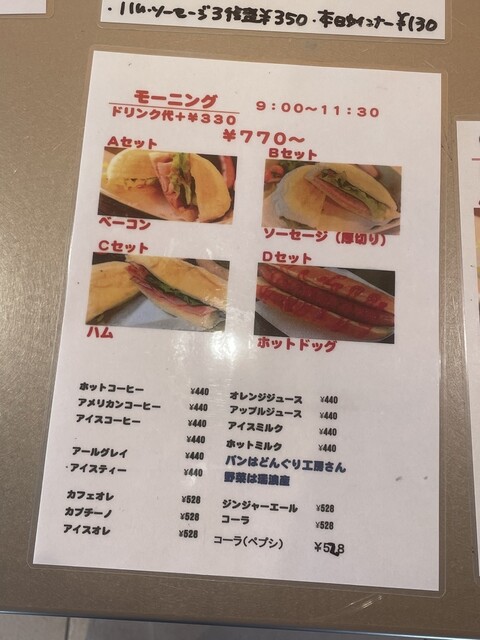 ・パルソーセージ3倍盛¥350・本日ウインナー¥130
モーニング
ドリンク代+¥330
9:00~11:30
¥770~
Aセット
Bセット
ベーコン
ソーセージ(厚切り)
Cセット
Dセット
ハム
ホットドッグ
ホットコーヒー ¥440
アメリカンコーヒー ¥440
アイスコーヒー ¥440
¥440
アールグレイ ¥440
・アイスティー ¥440
カフェオレ ¥528
カプチーノ ¥528
アイスオレ ¥528
オレンジジュース ¥440
アップルジュース ¥440
アイスミルク ¥440
ホットミルク ¥440
パンはどんぐり工房さん
野菜は湯浪産
ジンジャーエール ¥528
コーラ ¥528
コーラ(ペプシ) ¥528